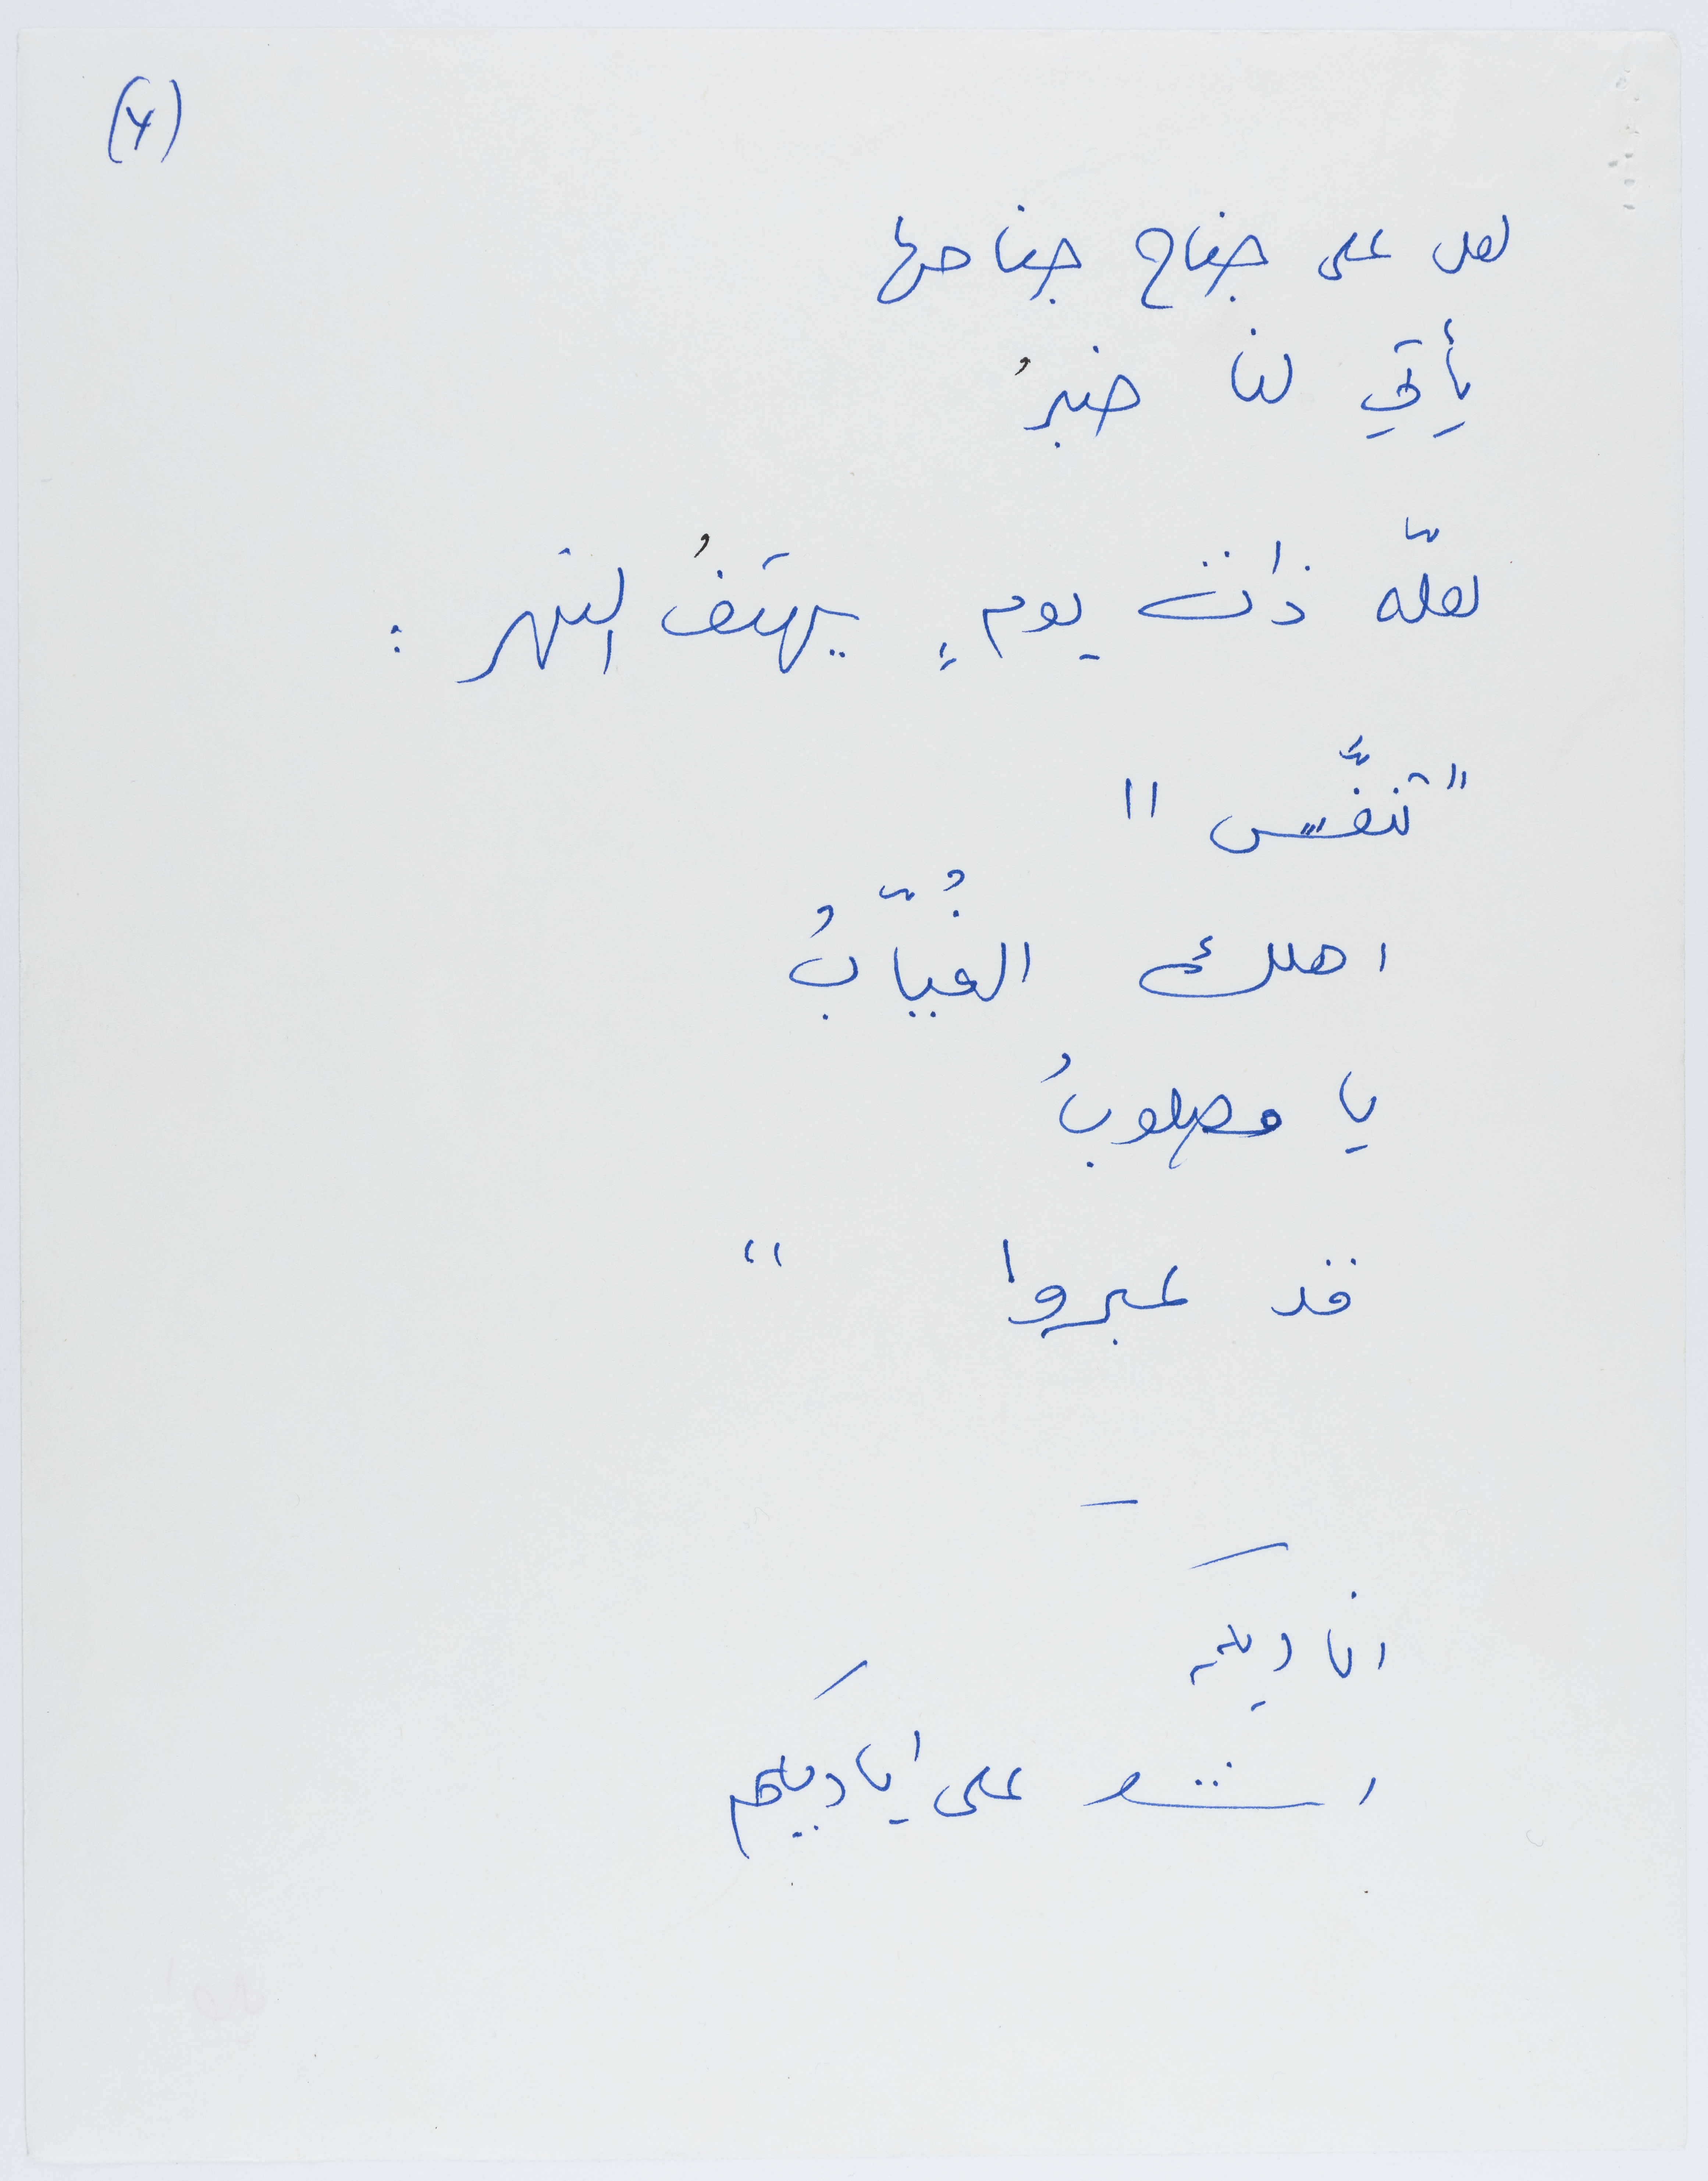 (٤)
لعل على جناح جناحها
يأتي لنا خبرُ
لعلّه ذات يومٍ يهتفُ النهر :
"تنفَّس "
اهلك الغُيّابُ
يا مصلوبُ
قد عبروا "
—
اناديكم
اشد على اياديكم